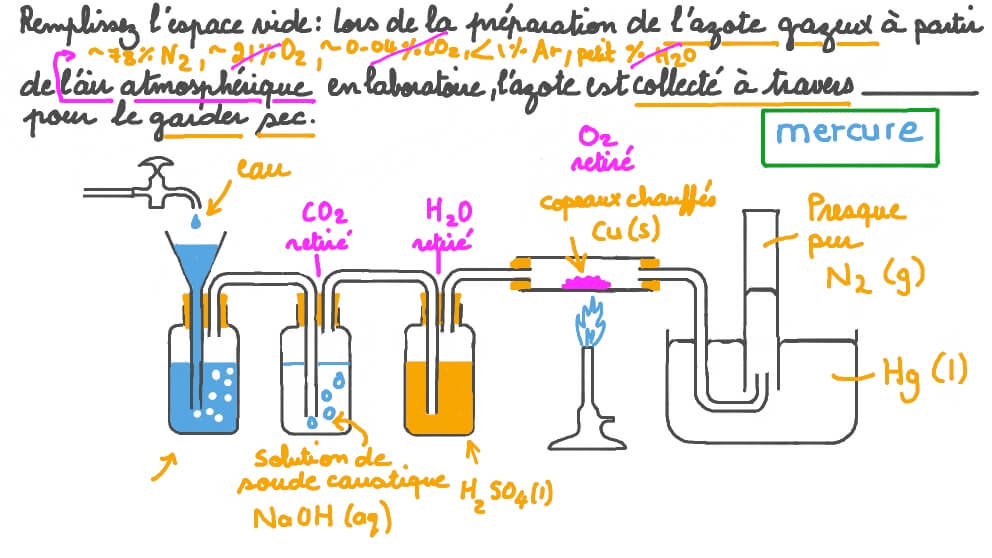 Remplissez l'espace vide : Lors de la préparation de l'azote gazeux à partir
~78% N2, ~21% O2, ~0.04% CO2, <1% Ar, petit % H2O
de l'air atmosphérique en laboratoire, l'azote est collecté à travers ________
pour le garder sec.
mercure
eau
CO2
retiré
H2O
retiré
O2
retiré
copeaux chauffés
Cu(s)
Presque
pur
N2(g)
Hg(l)
Solution de
soude caustique
NaOH(aq)
H2SO4(l)